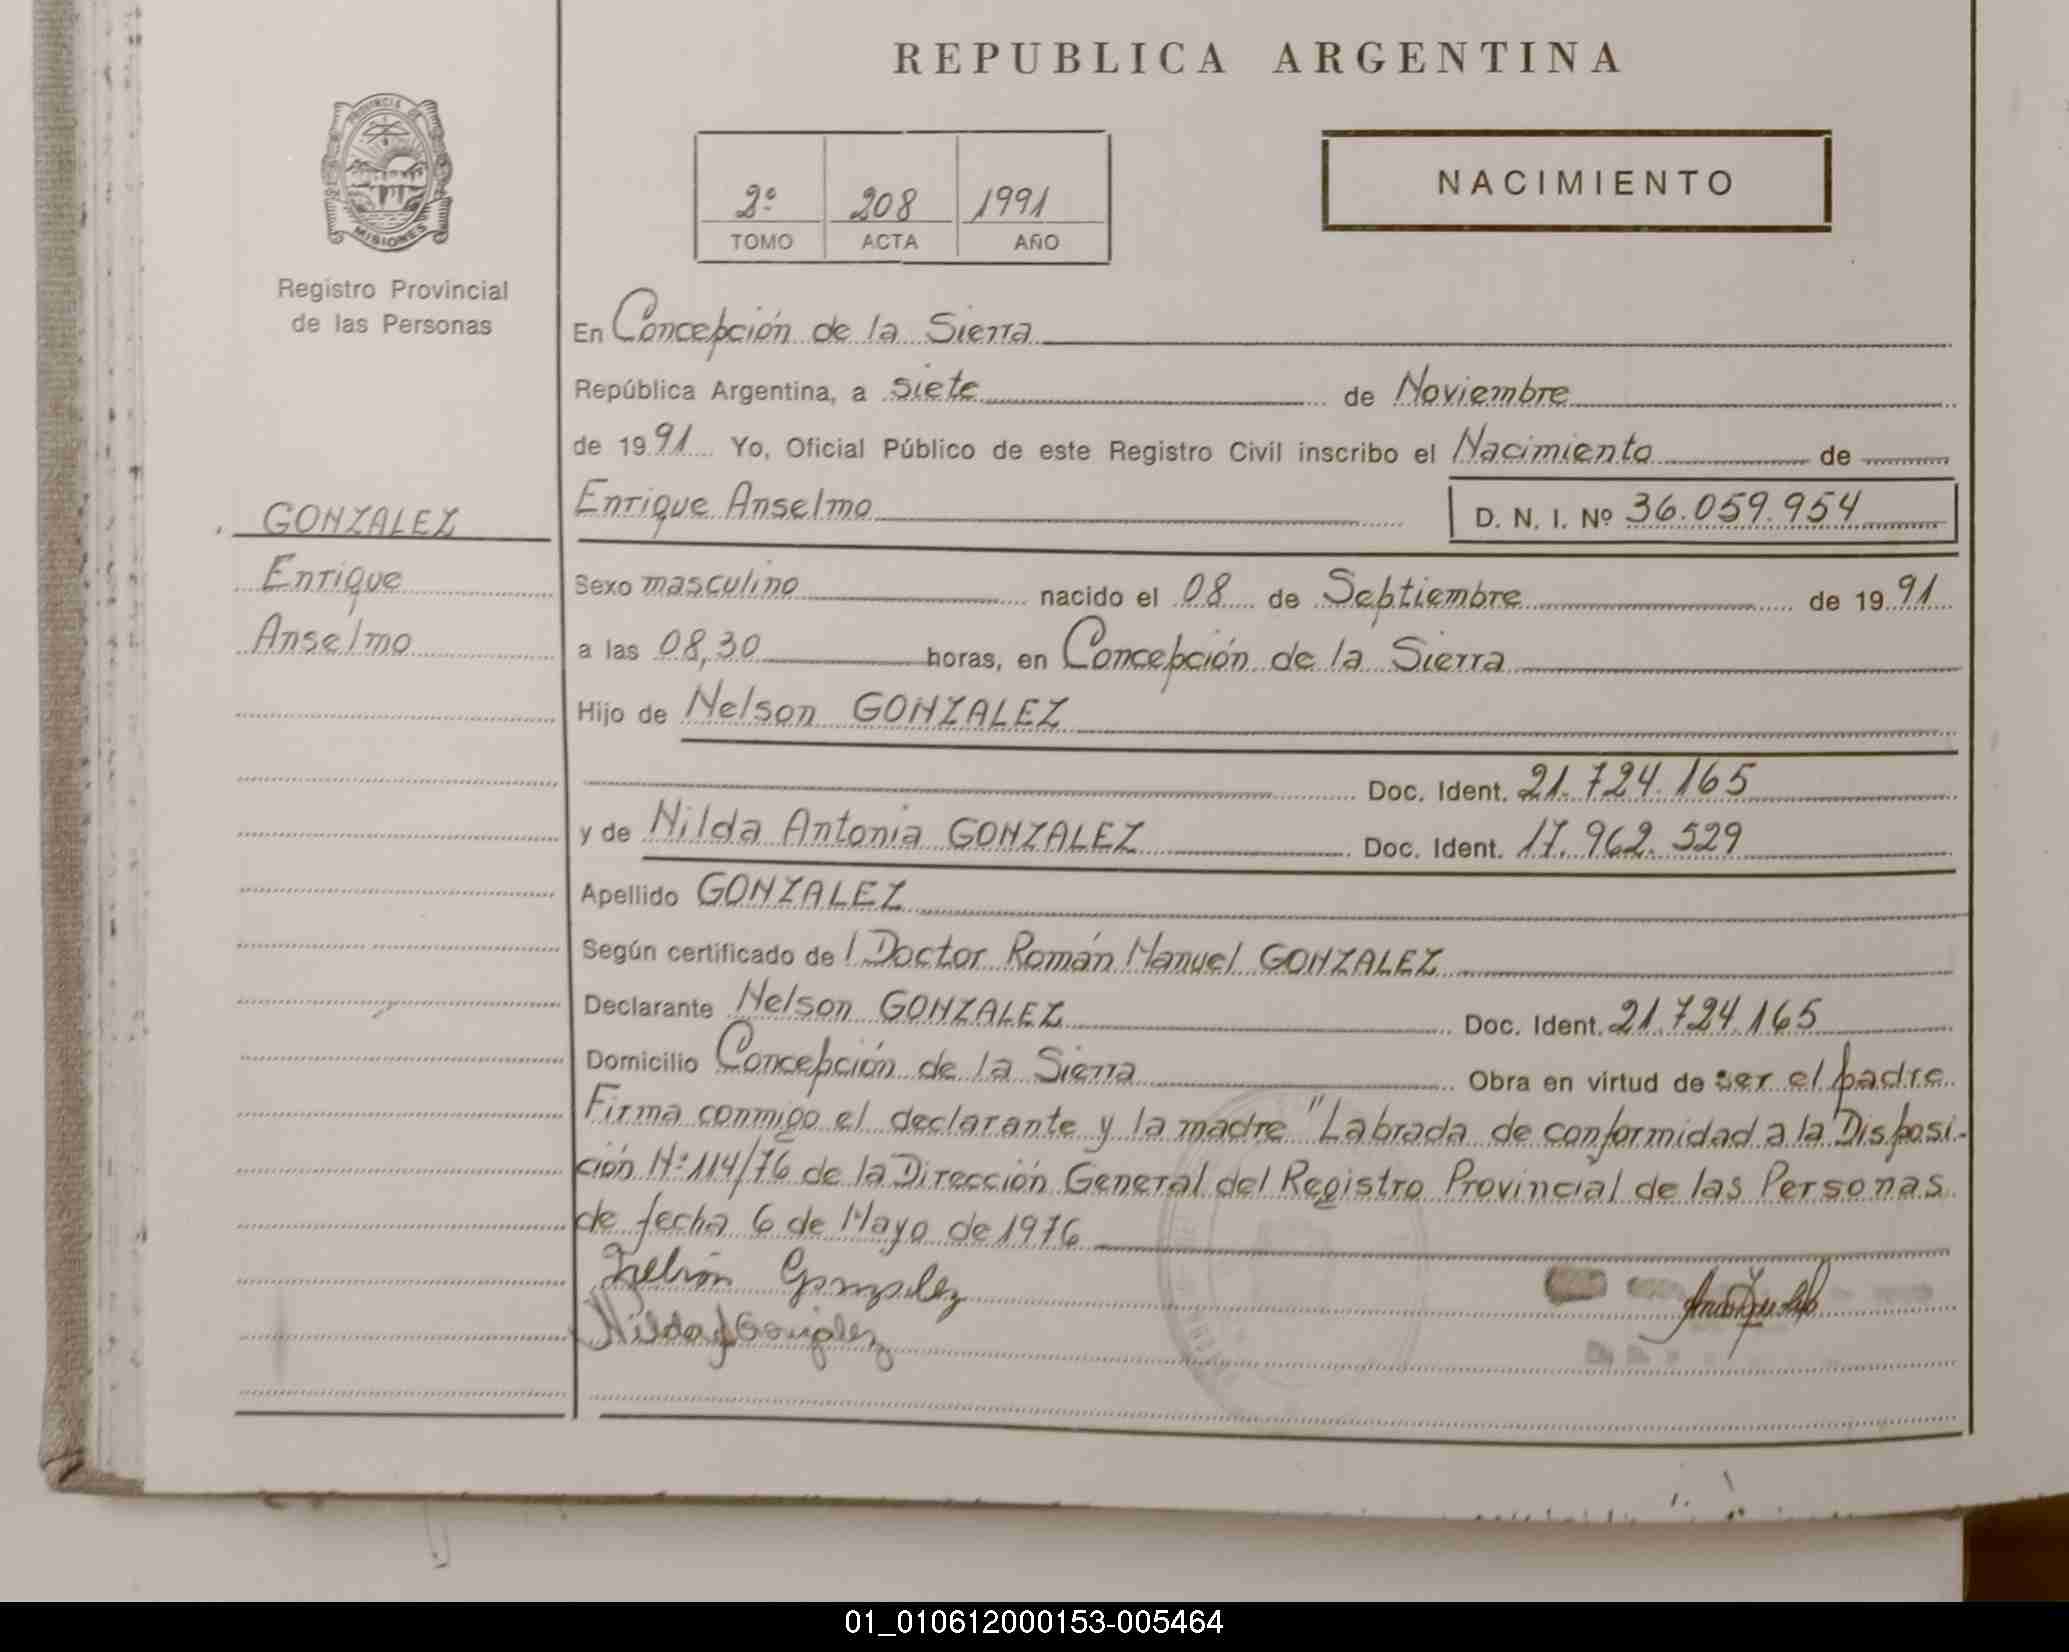 REPUBLICA ARGENTINA
PROVINCIA DE
MISIONES
Registro Provincial
de las Personas
2º 208 1991
TOMO ACTA AÑO
NACIMIENTO
En Concepción de la Sierra
República Argentina, a siete de Noviembre
de 1991 Yo, Oficial Público de este Registro Civil inscribo el Nacimiento de
GONZALEZ
Enrique
Anselmo
Enrique Anselmo D. N. I. Nº 36.059.954
Sexo masculino nacido el 08 de Septiembre de 1991
a las 08,30 horas, en Concepción de la Sierra
Hijo de Nelson GONZALEZ
Doc. Ident. 21.724.165
y de Nilda Antonia GONZALEZ Doc. Ident. 17.962.529
Apellido GONZALEZ
Según certificado de l Doctor Román Manuel GONZALEZ
Declarante Nelson GONZALEZ Doc. Ident. 21.724.165
Domicilio Concepción de la Sierra Obra en virtud de ser el padre
Firma conmigo el declarante y la madre "Labrada de conformidad a la Disposi-
ción Nº 114/76 de la Dirección General del Registro Provincial de las Personas
de fecha 6 de Mayo de 1976
Nelson Gonzalez
Nilda A Gonzalez
01_010612000153-005464